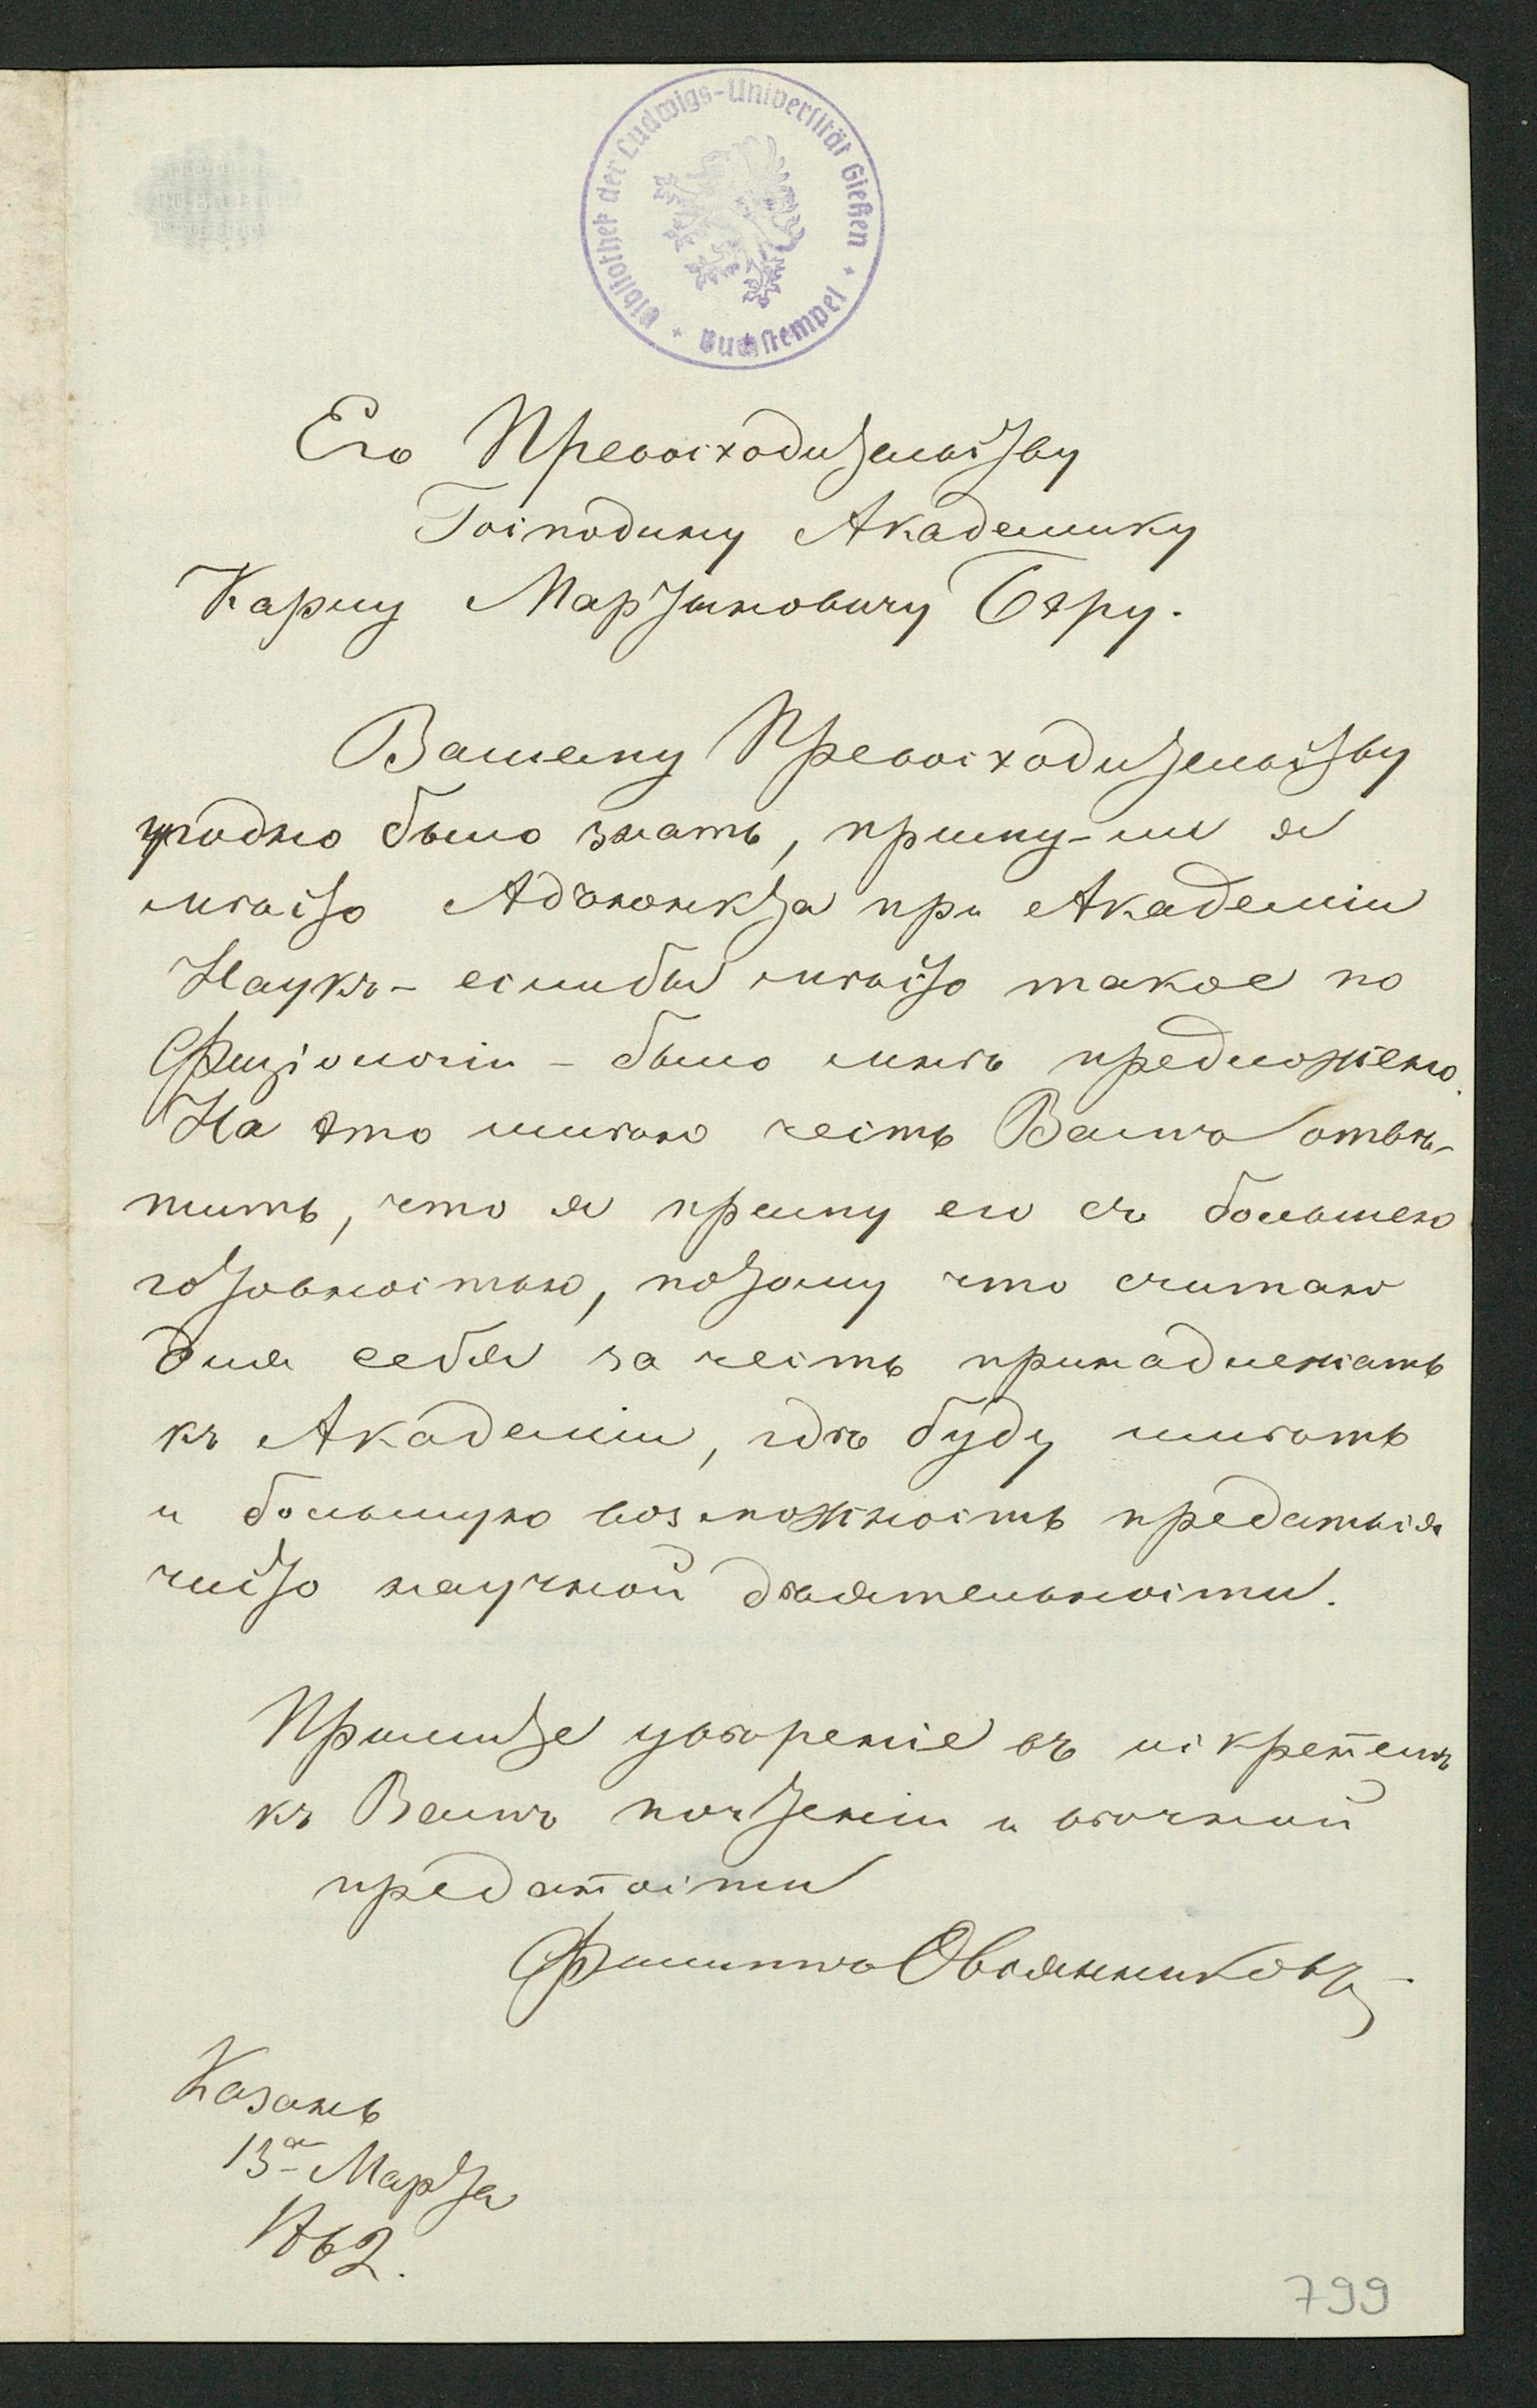 Bibliothek der Ludwigs-Universität Gießen
Buchstempel
Его Превосходительству
Господину Академику
Карлу Мартыновичу Бэру.
Вашему Превосходительству
угодно было знать, приму-ли я
мѣсто Адъюнкта при Академіи
Наукъ - еслибы мѣсто такое по
Физіологіи - было мнѣ предложено.
На это имѣю честь Вамъ отвѣ-
тить, что я приму его съ большею
готовностью, потому что считаю
для себя за честь принадлежать
къ Академіи, гдѣ буду имѣть
и большую возможность предаться
чисто научной дѣятельности.
Примите увѣреніе въ искреннемъ
къ Вамъ почтеніи и вѣчной
преданности
Филиппъ Овсянниковъ
Казань
13го Марта
1862.
799